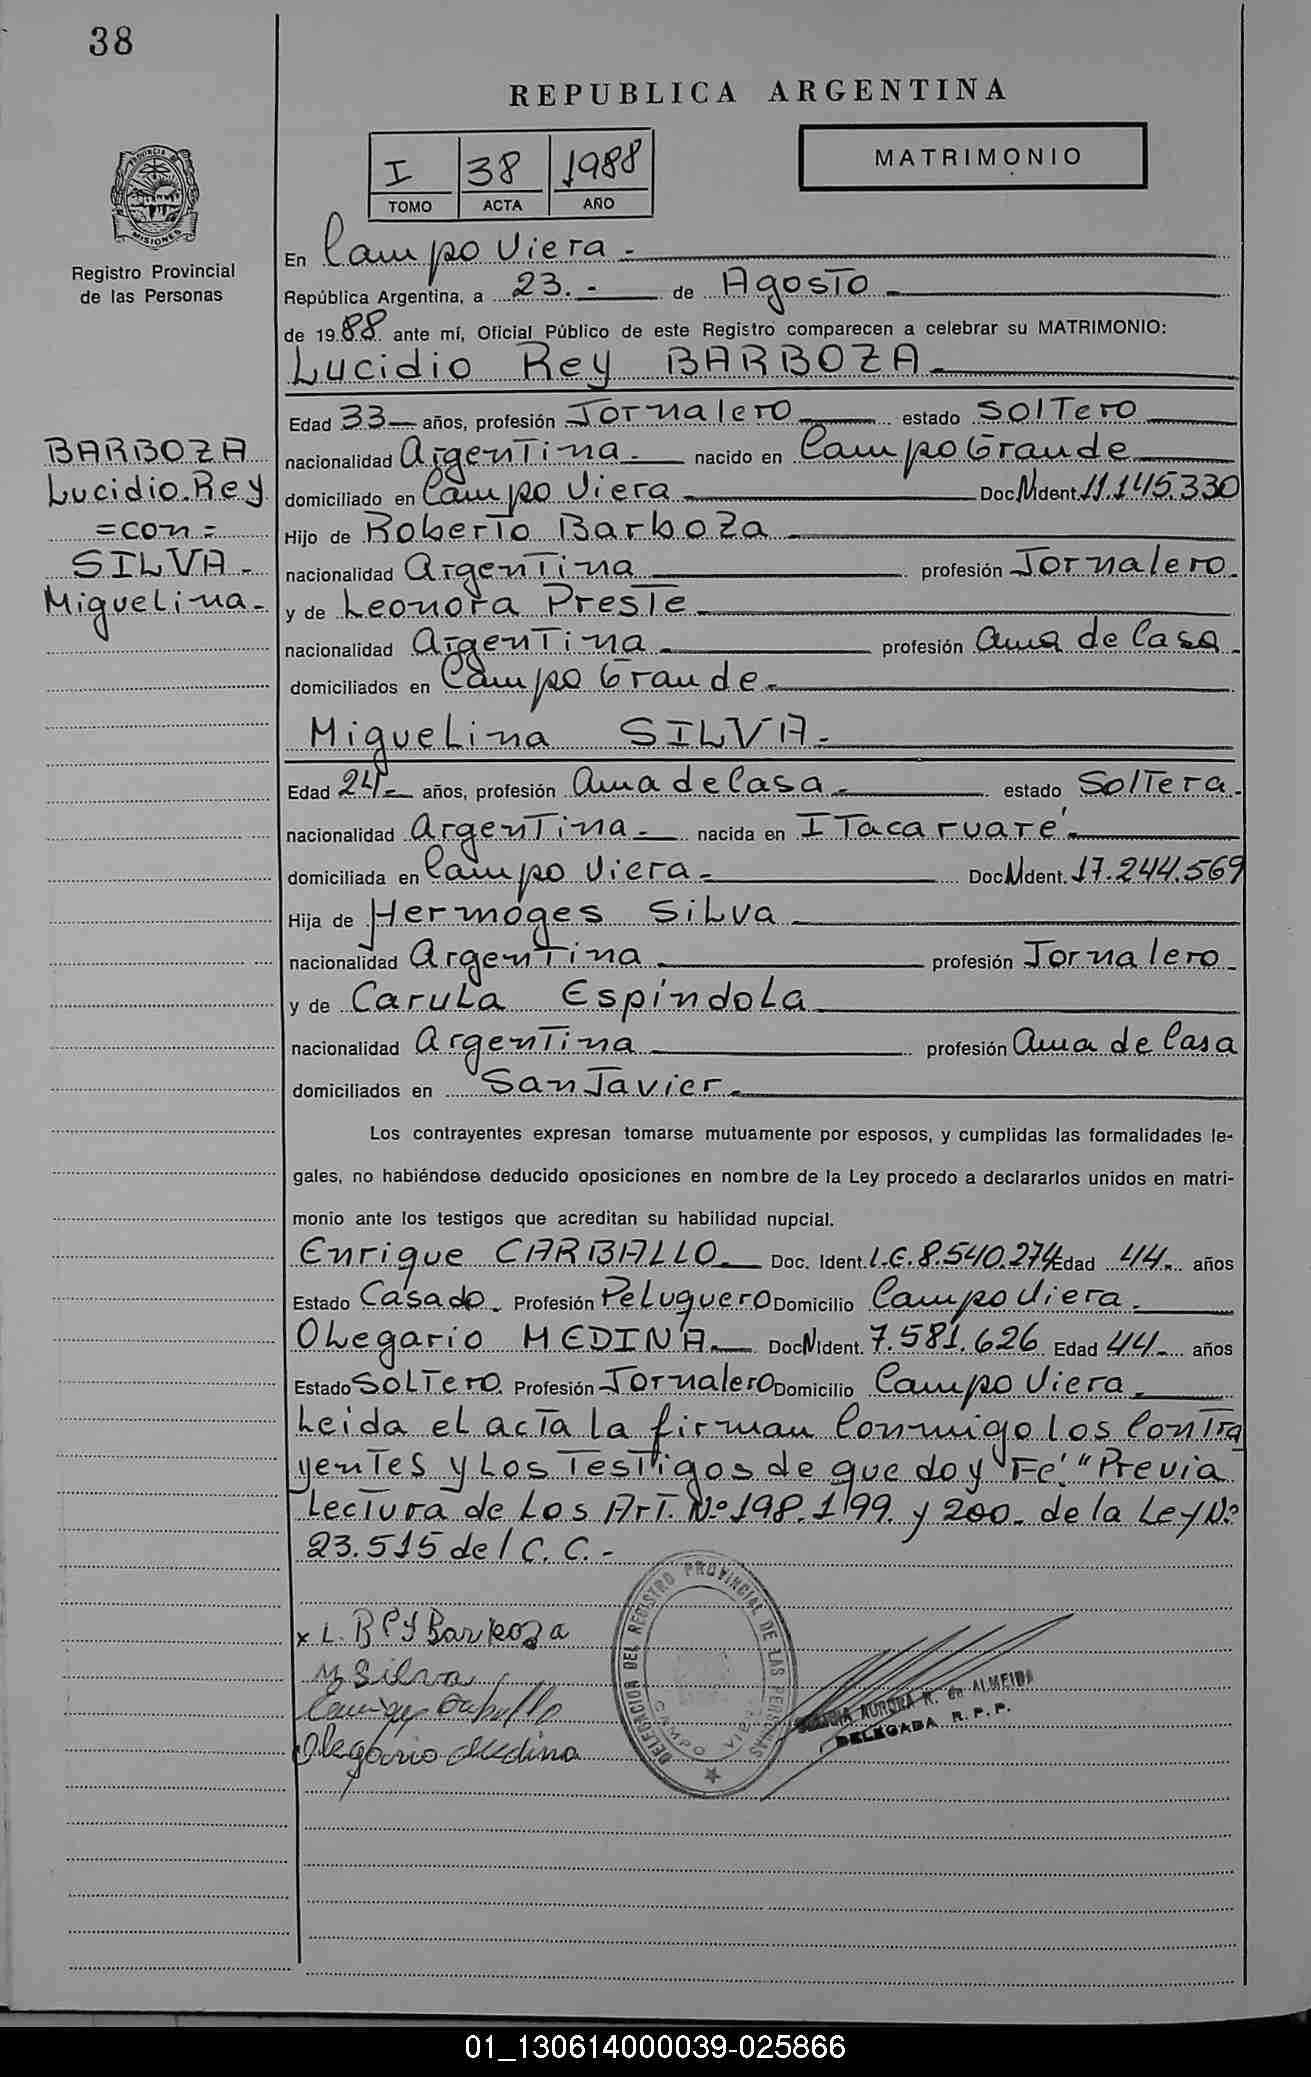 38
REPUBLICA ARGENTINA
MATRIMONIO
I 38 1988
TOMO ACTA AÑO
PROVINCIA DE
MISIONES
Registro Provincial
de las Personas
En Campo Viera.-
República Argentina, a 23.- de Agosto.-
de 1988 ante mí, Oficial Público de este Registro comparecen a celebrar su MATRIMONIO:
Lucidio Rey BARBOZA.-
BARBOZA
Lucidio.Rey
=con=
SILVA.-
Miguelina.-
Edad 33- años, profesión Jornalero estado Soltero
nacionalidad Argentina.- nacido en Campo Grande
domiciliado en Campo Viera.- Doc.N.Ident. 11.145.330
Hijo de Roberto Barboza.-
nacionalidad Argentina profesión Jornalero.
y de Leonora Preste.-
nacionalidad Argentina.- profesión Ama de Casa.
domiciliados en Campo Grande.-
Miguelina SILVA.-
Edad 24.- años, profesión Ama de Casa.- estado Soltera.
nacionalidad Argentina.- nacida en Itacaruaré.-
domiciliada en Campo Viera.- Doc.N.Ident. 17.244.569
Hija de Hermoges Silva.-
nacionalidad Argentina.- profesión Jornalero.
y de Carula Espindola
nacionalidad Argentina profesión Ama de Casa
domiciliados en San Javier.-
Los contrayentes expresan tomarse mutuamente por esposos, y cumplidas las formalidades le-
gales, no habiéndose deducido oposiciones en nombre de la Ley procedo a declararlos unidos en matri-
monio ante los testigos que acreditan su habilidad nupcial.
Enrique CARBALLO.- Doc. Ident. L.E. 8.540.274 Edad 44.- años
Estado Casado. Profesión Peluquero Domicilio Campo Viera.
Olegario MEDINA.- Doc.N.Ident. 7.581.626 Edad 44.- años
Estado Soltero. Profesión Jornalero Domicilio Campo Viera.
Leida el acta la firman Conmigo los Contra
yentes y Los Testigos de que doy "Fe". "Previa
Lectura de Los Art. Nº 198.199. y 200. de la Ley Nº
23.515 del C.C.-
x L. Rey Barboza
M Silva
Enrique Carballo
Olegario Medina
DELEGACION DEL REGISTRO PROVINCIAL DE LAS PERSONAS
CAMPO VIERA
AURORA K. de ALMEIDA
DELEGADA R.P.P.
01_130614000039-025866